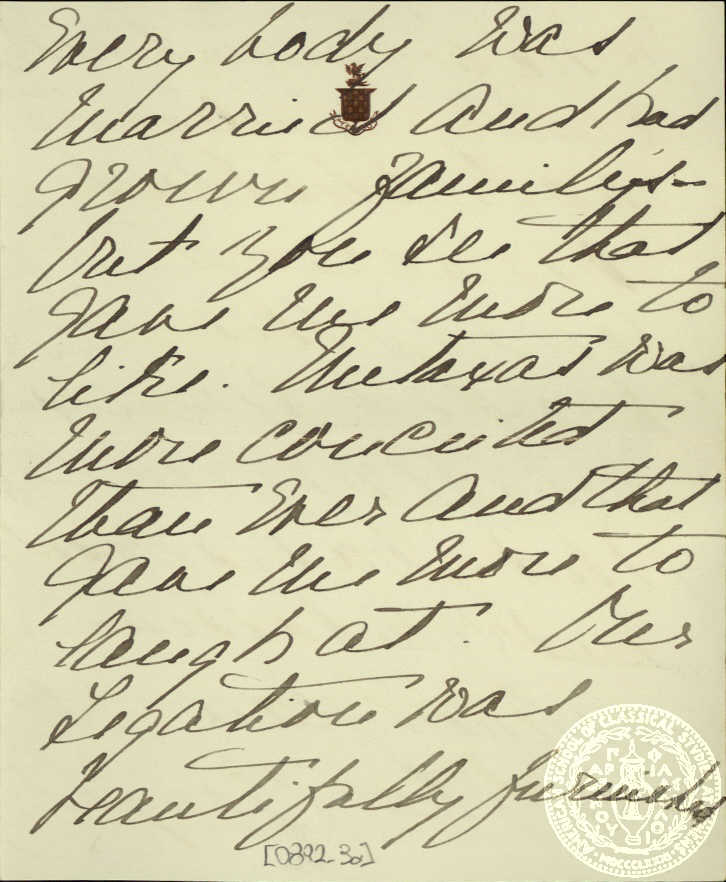 Every body was
married and had
grown families –
but you see that
gave me more to
like. Metaxas was
more conceited
than ever and that
gave me more to
laugh at. Our
Legation was
beautifully furnished
[0892_3a]
AMERICAN SCHOOL OF CLASSICAL STUDIES AT ATHENS
MDCCCLXXXI